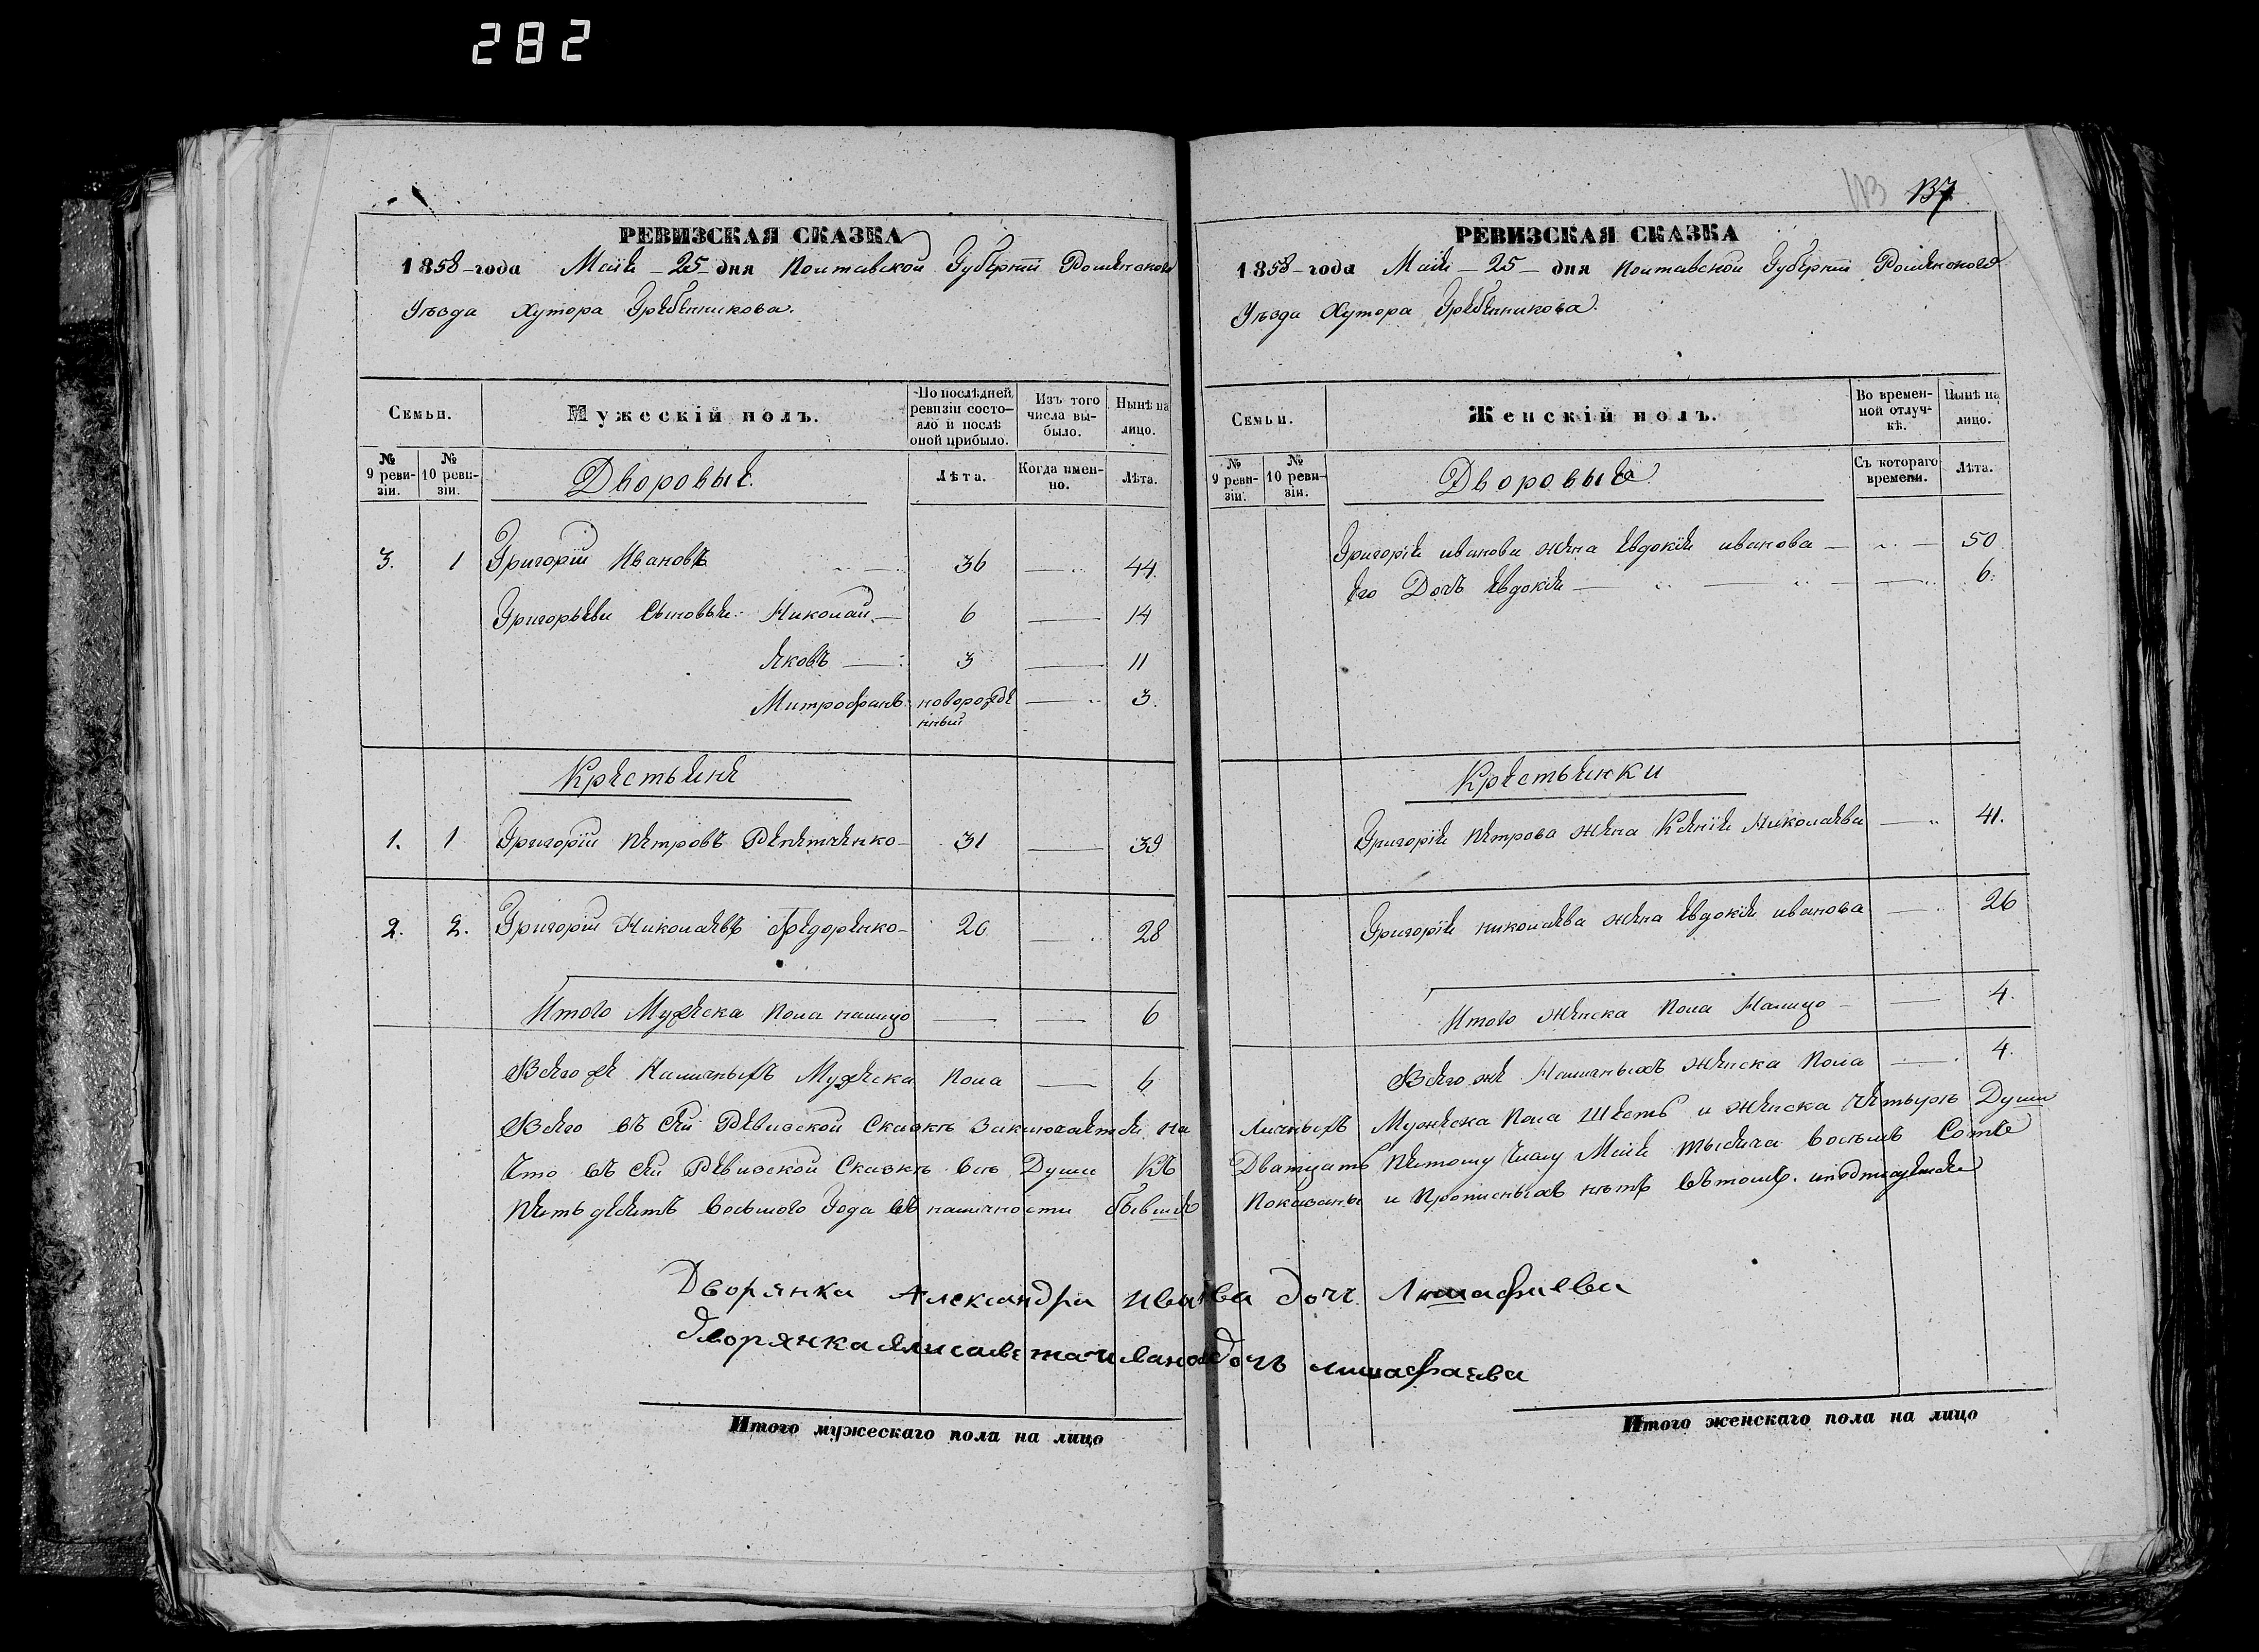 282
113 137
РЕВИЗСКАЯ СКАЗКА
1858-года Маія - 25 - дня Полтавской Губерніи Роменскаго
Уѣзда Хутора Гребенникова.
Семьи.
Мужескій полъ.
По послѣдней ревизіи состояло и послѣ оной прибыло.
Изъ того числа выбыло.
Нынѣ на лицо.
№ 9 ревизіи.
№ 10 ревизіи.
Дворовые.
Лѣта.
Когда именно.
Лѣта.
3. 1 Григорій Ивановъ 36 — 44.
Григорьевы Сыновья: Николай — 6 — 14
Яковъ — 3 — 11
Митрофанъ новорожденный — 3.
Крестьяне
1. 1 Григорій Петровъ Репетченко — 31 — 39
2. 2. Григорій Николаевъ Федоренко — 20 — 28
Итого Мужеска Пола налицо — — 6
Всего же Наличныхъ Мужеска Пола — 6
РЕВИЗСКАЯ СКАЗКА
1858-года Маія - 25 - дня Полтавской Губерніи Роменскаго
Уѣзда Хутора Гребенникова.
Семьи.
Женскій полъ.
Во временной отлучкѣ.
Нынѣ на лицо.
№ 9 ревизіи.
№ 10 ревизіи.
Дворовые
Съ котораго времени.
Лѣта.
Григорія иванова жена Евдокія иванова — — 50
Его Дочь Евдокія — — — 6.
Крестьянки
Григорія Петрова жена Ксенія Николаева — 41.
Григорія николаева жена Евдокія иванова — 26
Итого женска Пола Налицо — — 4.
Всего же Наличныхъ женска Пола — 4.
Всего въ сей Ревизской Сказкѣ Заключается на личныхъ Мужеска Пола Шесть и женска четыре Души
Что въ сей Ревизской Сказкѣ всѣ Души Къ Дватцать Пятому Числу Маія тысяча восемь Сотъ
Пять десятъ Восьмого Года въ наличности бывшія Показаны и Прописныхъ нѣтъ вътомъ. иподписуемся
Дворянка Александра Ива дочь
дворянка Елисавета Иванова дочь
Итого мужескаго пола на лицо
Итого женскаго пола на лицо